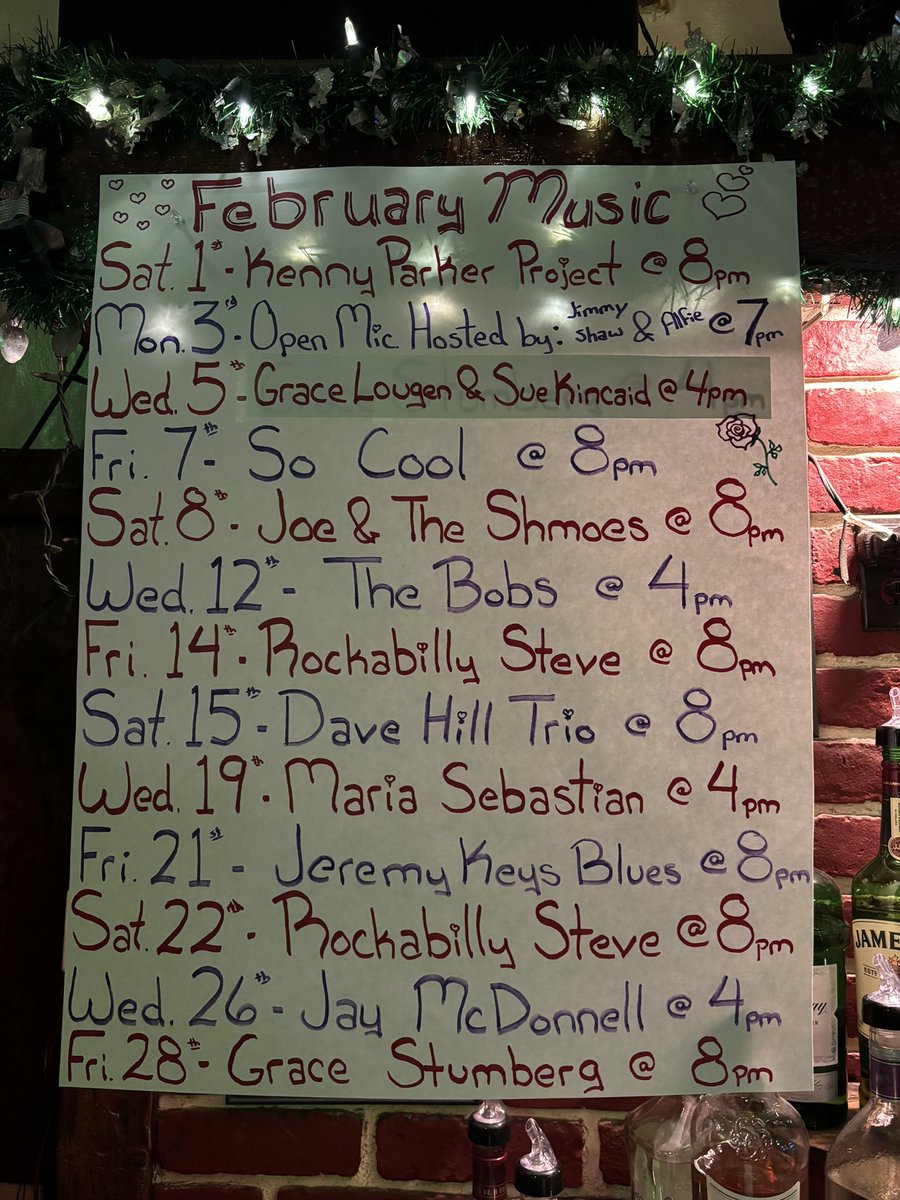 February Music
Sat. 1st - Kenny Parker Project @ 8pm
Mon. 3rd - Open Mic Hosted by: Jimmy Shaw & Alfie @ 7pm
Wed. 5th - Grace Lougen & Sue Kincaid @ 4pm
Fri. 7th - So Cool @ 8pm
Sat. 8th - Joe & The Shmoes @ 8pm
Wed. 12th - The Bobs @ 4pm
Fri. 14th - Rockabilly Steve @ 8pm
Sat. 15th - Dave Hill Trio @ 8pm
Wed. 19th - Maria Sebastian @ 4pm
Fri. 21st - Jeremy Keys Blues @ 8pm
Sat. 22th - Rockabilly Steve @ 8pm
Wed. 26th - Jay McDonnell @ 4pm
Fri. 28th - Grace Stumberg @ 8pm
JAME